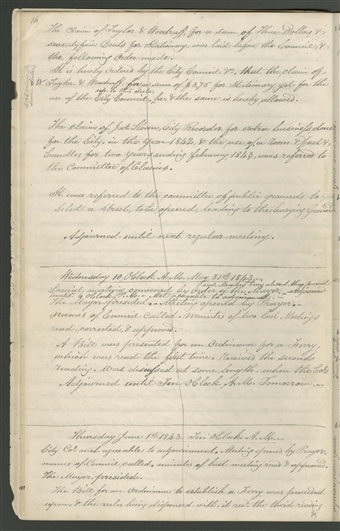 16
The claim of Taylor & Woodruff, for a sum of Three Dollars &
seventy five Cents for Stationary, was laid before the Council, &
the following Order made.
It is hereby ordered by the City Council &c, that the claim of
Taylor & Woodruff, for a sum of $3,75 for Stationary, &c for the
use of the City Council, be & the same is hereby allowed.
The claim of Jas Sloan, City Recorder for extra business done
for the City, in the Year 1842, & the use of a Room & Fuel &
Candles for two Years ending February 1843, was referred to
the Committee of Claims.
It was referred to the committee of public grounds to
select a Street, to be opened, leading to the burying Ground
Adjourned until next regular meeting.
Wednesday 10. OClock A.M. May 31st 1843.
Special meeting convened by Order of the Mayor
until 4 OClock P.M. Met agreeable to adjournment
The Mayor presided. Meeting opened by Prayer.
names of Council called. Minutes of two last Meetings
read, corrected & approved.
A Bill was presented for an Ordinance for a Ferry,
which was read the first time. Received the second
reading. Was discussed at some length, when the Col
Adjourned until Ten OClock A.M. Tomorrow.
Thursday June 1st 1843. Ten OClock A.M.
City Col met agreeable to adjournment. Meeting opened by Prayer,
names of Council called, minutes of last meeting read & approved.
The Mayor presided.
The Bill for an Ordinance to establish a Ferry was proceeded
upon, & the rules being dispensed with, it recd the third reading